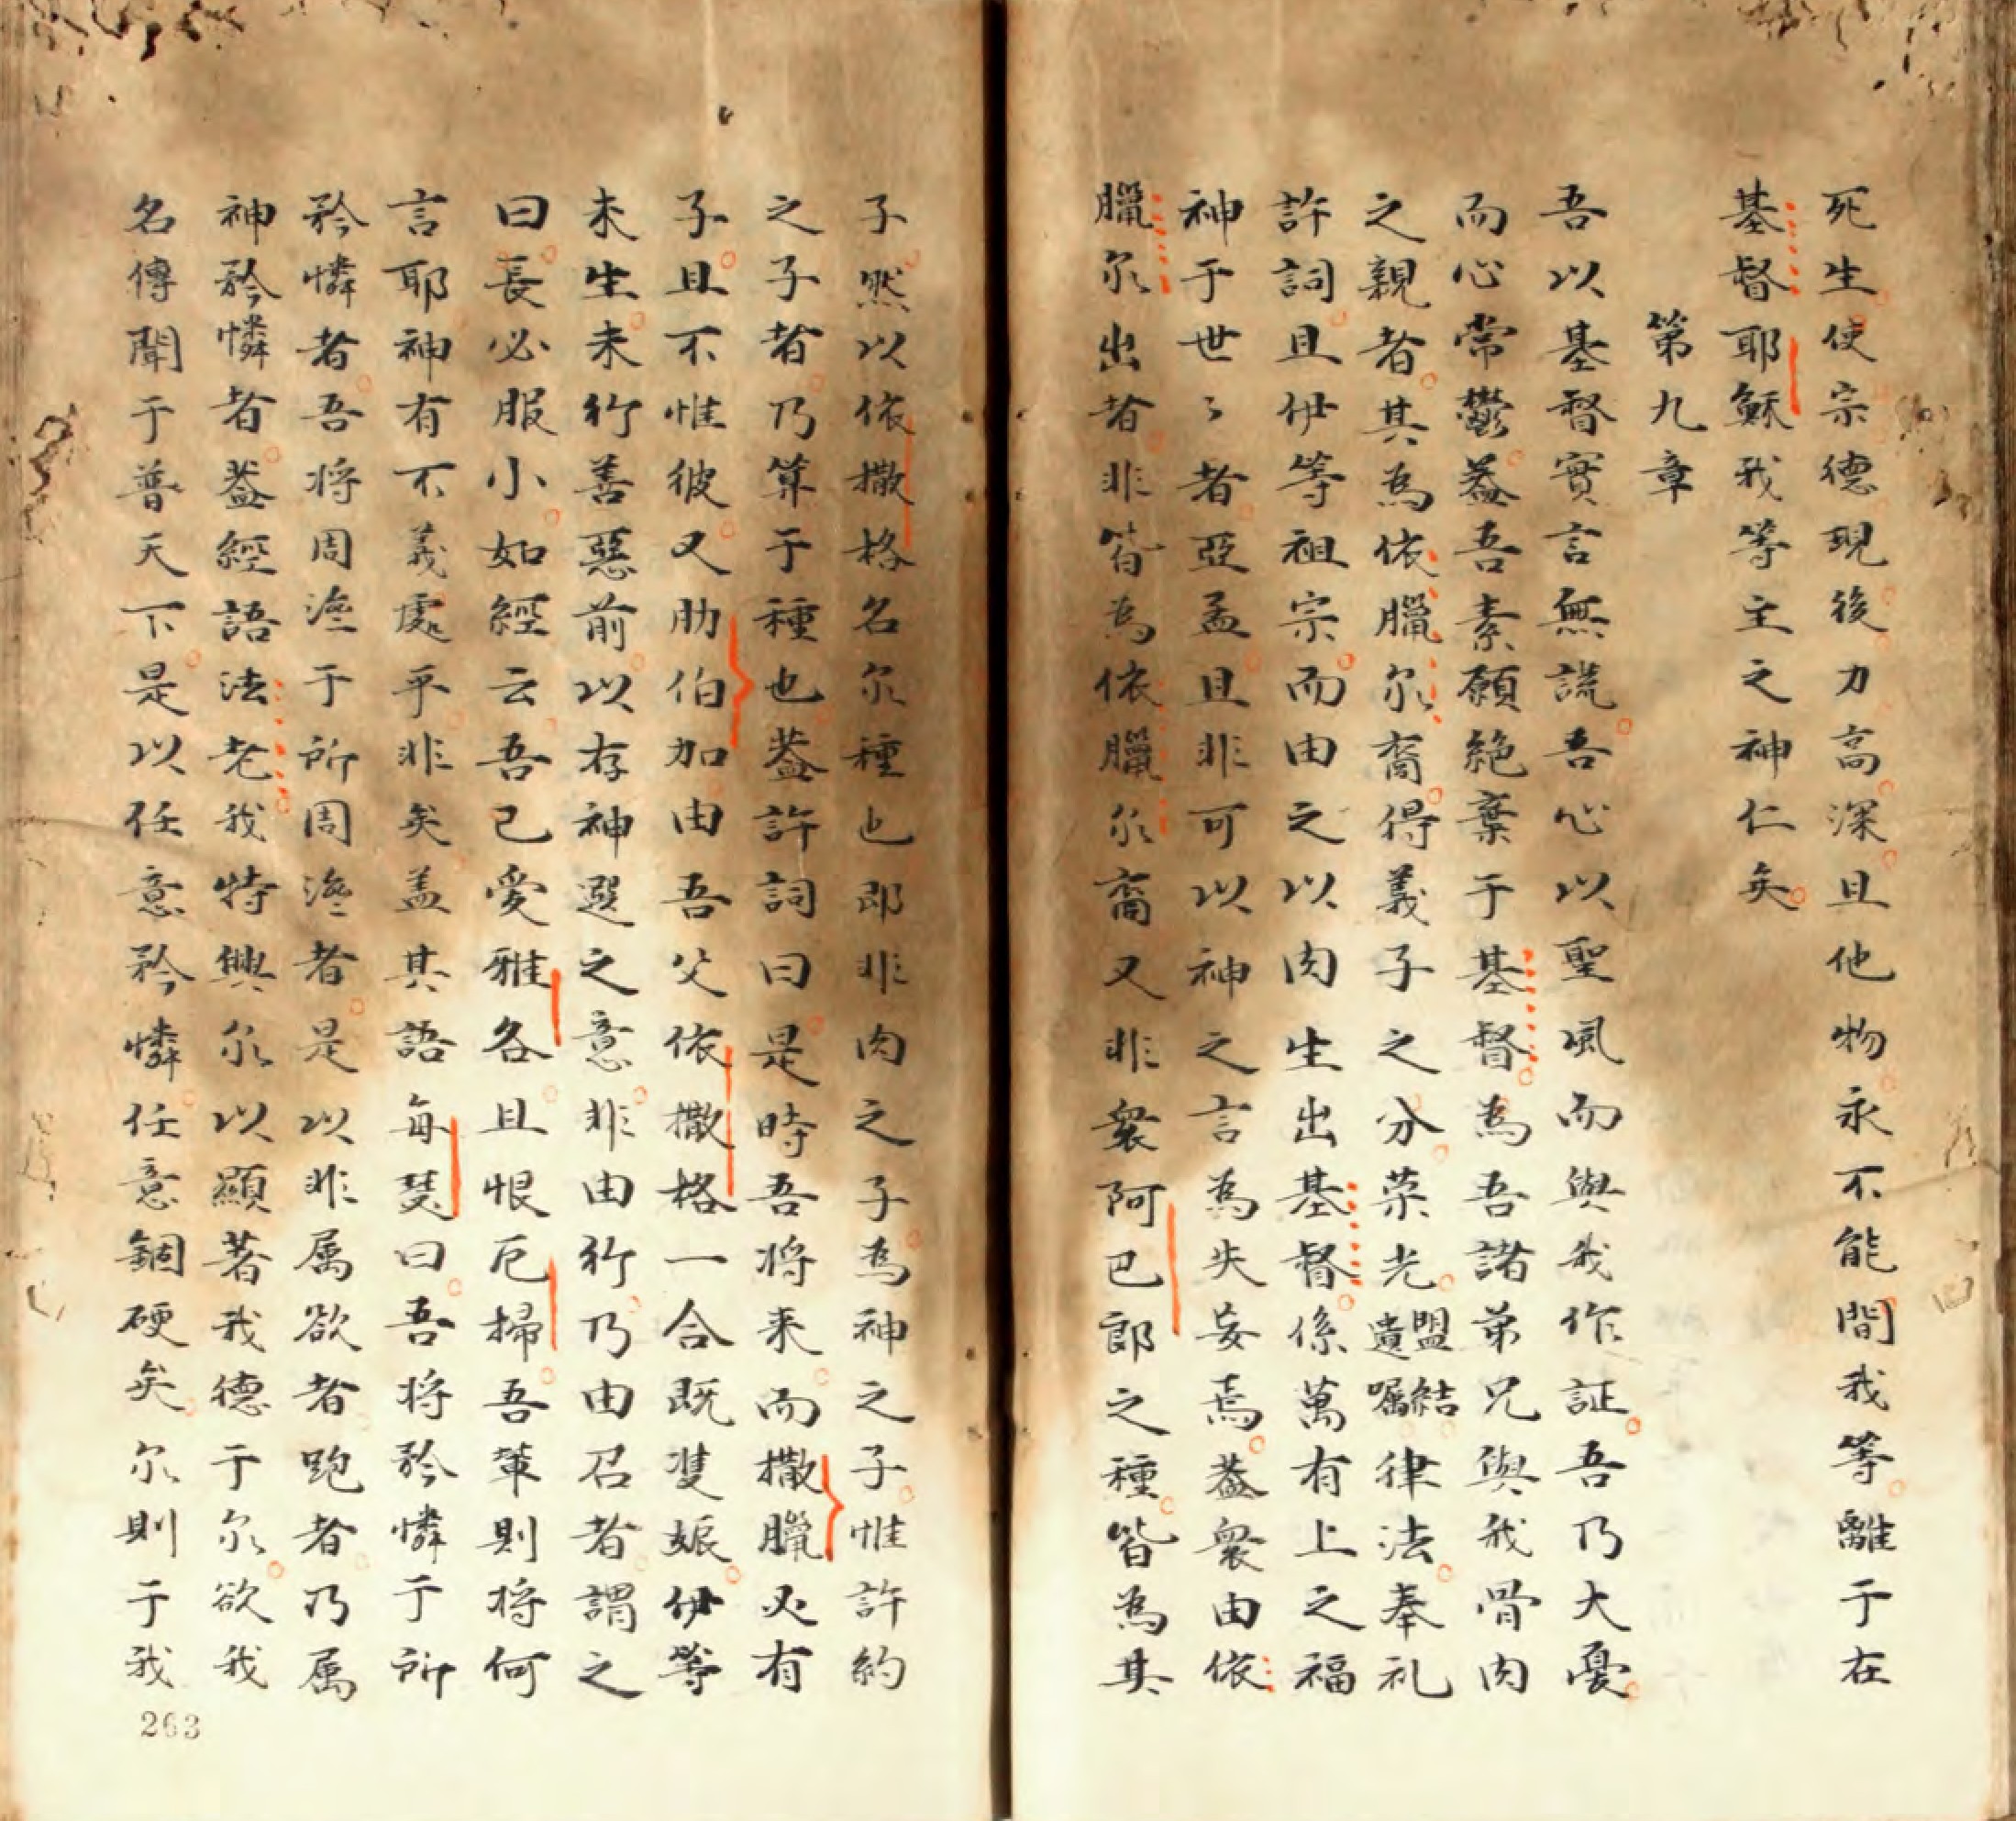 死生使宗德現後力高深且他物永不能間我等離于在
基督耶穌我等主之神仁矣
第九章
吾以基督實言無謊吾心以聖風而與我作証吾乃大憂
而心常鬱葢吾素願絶棄于基督為吾諸弟兄與我骨肉
之親者其為依臘尔裔得義子之分荣光盟結遺囑律法奉礼
許詞且伊等祖宗而由之以肉生出基督係萬有上之福
神于世々者亞孟且非可以神之言為失妄焉葢衆由依
臘尔出者非皆為依臘尔裔又非衆阿巴郎之種皆為其
子然以依撒格名尔種也即非肉之子為神之子惟許約
之子者乃算于種也葢許詞曰是時吾将来而撒臘必有
子且不惟彼又肋伯加由吾父依撒格一合既䨇娠伊等
未生未行善惡前以存神選之意非由行乃由召者謂之
曰長必服小如經云吾已愛雅各且恨厄掃吾輩則将何
言耶神有不義處乎非矣盖其語每瑟曰吾将矜憐于所
矜憐者吾将周濟于所周濟者是以非属欲者跑者乃属
神矜憐者葢經語法老我特興尔以顯著我德于尔欲我
名傳聞于普天下是以任意矜憐任意錮硬矣尔則于我
263